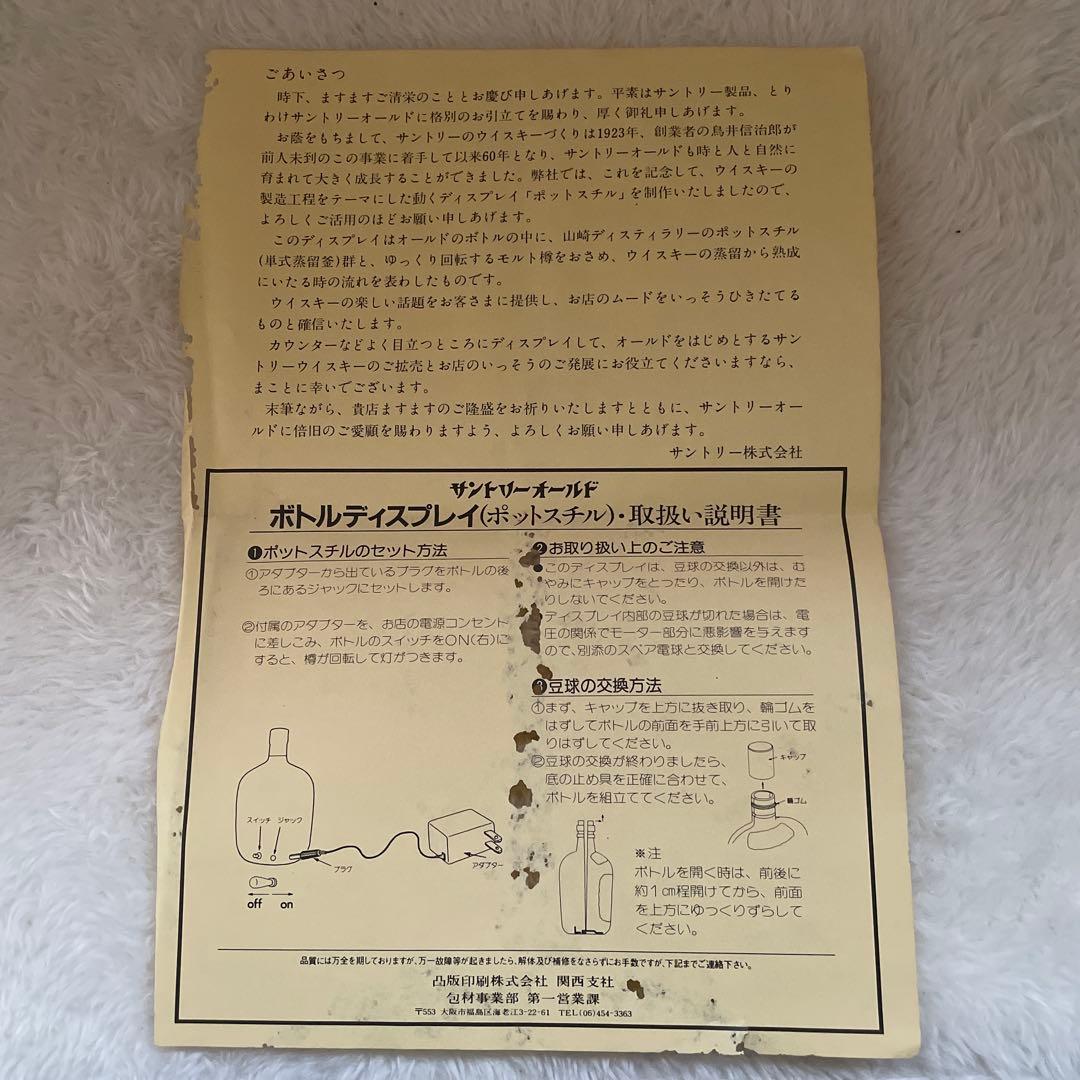 ごあいさつ
時下、ますますご清栄のこととお慶び申しあげます。平素はサントリー製品、とり
わけサントリーオールドに格別のお引立てを賜わり、厚く御礼申しあげます。
お蔭をもちまして、サントリーのウイスキーづくりは1923年、創業者の鳥井信治郎が
前人未到のこの事業に着手して以来60年となり、サントリーオールドも時と人と自然に
育まれて大きく成長することができました。弊社では、これを記念して、ウイスキーの
製造工程をテーマにした動くディスプレイ「ポットスチル」を制作いたしましたので、
よろしくご活用のほどお願い申しあげます。
このディスプレイはオールドのボトルの中に、山崎ディスティラリーのポットスチル
(単式蒸留釜)群と、ゆっくり回転するモルト樽をおさめ、ウイスキーの蒸留から熟成
にいたる時の流れを表わしたものです。
ウイスキーの楽しい話題をお客さまに提供し、お店のムードをいっそうひきたてる
ものと確信いたします。
カウンターなどよく目立つところにディスプレイして、オールドをはじめとするサン
トリーウイスキーのご拡売とお店のいっそうのご発展にお役立てくださいますなら、
まことに幸いでございます。
末筆ながら、貴店ますますのご隆盛をお祈りいたしますとともに、サントリーオー
ルドに倍旧のご愛顧を賜わりますよう、よろしくお願い申しあげます。
サントリー株式会社
サントリーオールド
ボトルディスプレイ(ポットスチル)・取扱い説明書
❶ポットスチルのセット方法
①アダプターから出ているプラグをボトルの後
ろにあるジャックにセットします。
②付属のアダプターを、お店の電源コンセント
に差しこみ、ボトルのスイッチをON(右)に
すると、樽が回転して灯がつきます。
スイッチ ジャック
プラグ
アダプター
off on
❷お取り扱い上のご注意
●このディスプレイは、豆球の交換以外は、む
やみにキャップをとったり、ボトルを開けた
りしないでください。
ディスプレイ内部の豆球が切れた場合は、電
圧の関係でモーター部分に悪影響を与えます
ので、別添のスペア電球と交換してください。
❸豆球の交換方法
①まず、キャップを上方に抜き取り、輪ゴムを
はずしてボトルの前面を手前上方に引いて取
りはずしてください。
②豆球の交換が終わりましたら、
底の止め具を正確に合わせて、
ボトルを組立ててください。
キャップ
輪ゴム
※注
ボトルを開く時は、前後に
約1cm程開けてから、前面
を上方にゆっくりずらして
ください。
品質には万全を期しておりますが、万一故障等が起きましたら、解体及び補修をなさらずにお手数ですが、下記までご連絡下さい。
凸版印刷株式会社 関西支社
包材事業部 第一営業課
〒553 大阪市福島区海老江3-22-61 TEL(06)454-3363